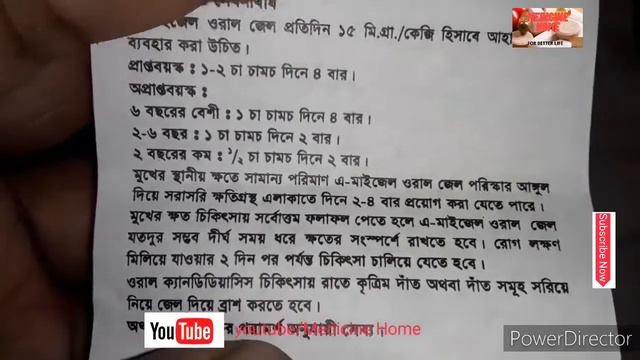 ওরাল জেল প্রতিদিন ১৫ মি.গ্রা./কেজি হিসাবে
ব্যবহার করা উচিত।
প্রাপ্তবয়স্ক : ১-২ চা চামচ দিনে ৪ বার।
অপ্রাপ্তবয়স্ক :
৬ বছরের বেশী : ১ চা চামচ দিনে ৪ বার।
২-৬ বছর : ১ চা চামচ দিনে ২ বার।
২ বছরের কম : ১/২ চা চামচ দিনে ২ বার।
মুখের স্থানীয় ক্ষতে সামান্য পরিমাণ এ-মাইজেল ওরাল জেল পরিস্কার আঙ্গুল
দিয়ে সরাসরি ক্ষতিগ্রস্থ এলাকাতে দিনে ২-৪ বার প্রয়োগ করা যেতে পারে।
মুখের ক্ষত চিকিৎসায় সর্বোত্তম ফলাফল পেতে হলে এ-মাইজেল ওরাল জেল
যতদুর সম্ভব দীর্ঘ সময় ধরে ক্ষতের সংস্পর্শে রাখতে হবে। রোগ লক্ষণ
মিলিয়ে যাওয়ার ২ দিন পর পর্যন্ত চিকিৎসা চালিয়ে যেতে হবে।
ওরাল ক্যানডিডিয়াসিস চিকিৎসায় রাতে কৃত্রিম দাঁত অথবা দাঁত সমূহ সরিয়ে
নিয়ে জেল দিয়ে ব্রাশ করতে হবে।
পরামর্শ অনুযায়ী সেব্য।
MEDICINE HOME
FOR BETTER LIFE
Subscribe Now
YouTube
youtube/Medicine Home
PowerDirector